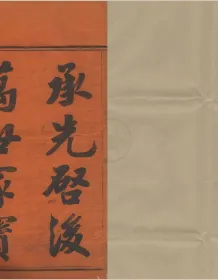 承先啓後
萬世家寶